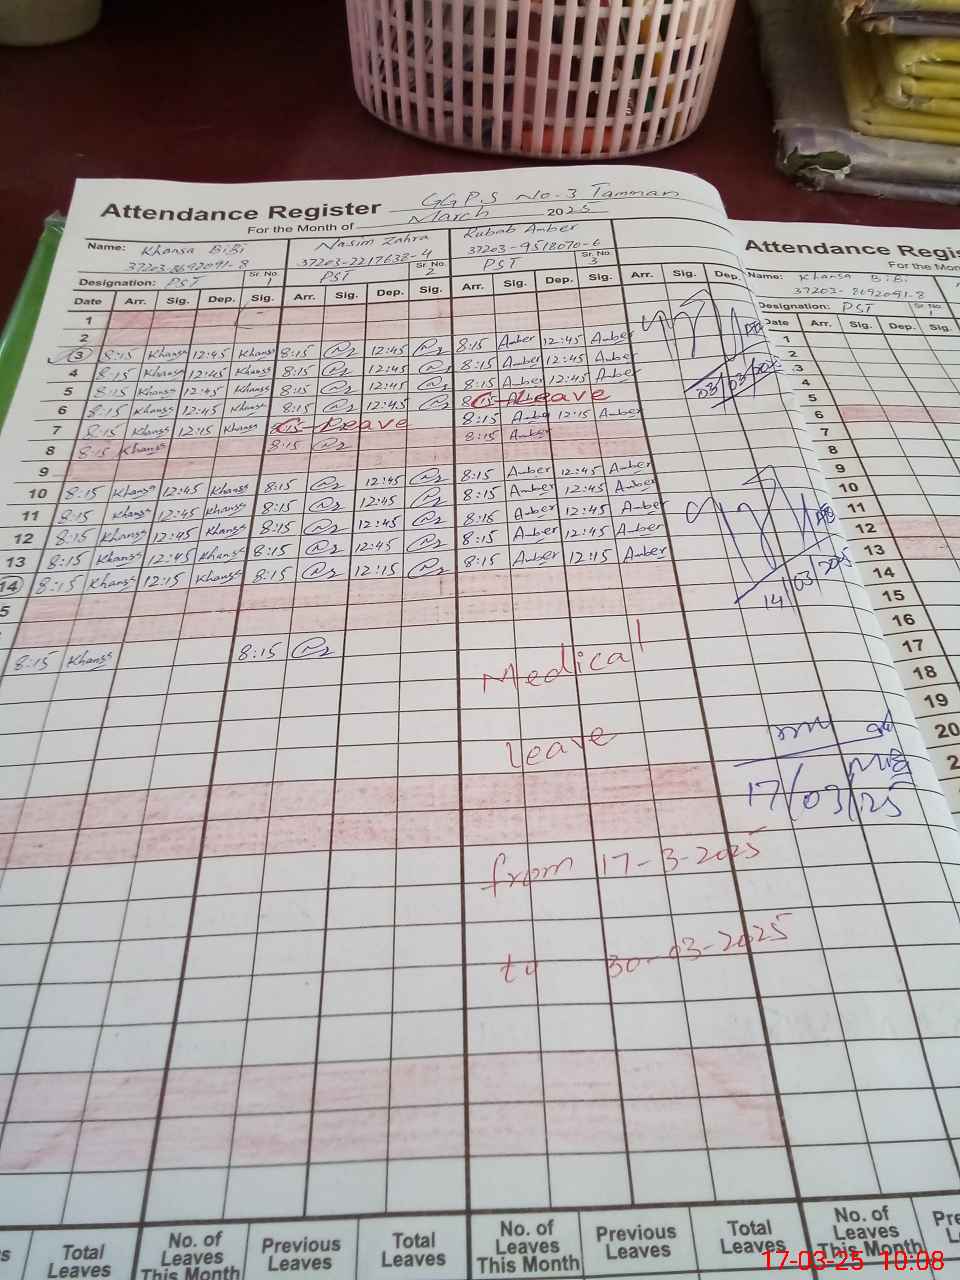 Attendance Register GGPS No-3 Tamman
For the Month of March 2025
Name: Khansa BiBi Nasim Zahra Rubab Amber
37203-8692091-8 37203-2217638-4 37203-9518070-6
Designation: PST Sr. No. 1 PST Sr. No. 2 PST Sr. No. 3
Date Arr. Sig. Dep. Sig. Arr. Sig. Dep. Sig. Arr. Sig. Dep. Sig. Arr. Sig. Dep.
1
2
3 8:15 Khansa 12:45 Khansa 8:15 12:45 8:15 Amber 12:45 Amber
4 8:15 Khansa 12:45 Khansa 8:15 12:45 8:15 Amber 12:45 Amber
5 8:15 Khansa 12:45 Khansa 8:15 12:45 8:15 Amber 12:45 Amber
6 8:15 Khansa 12:45 Khansa 8:15 12:45 C-Leave
7 8:15 Khansa 12:15 Khansa C-Leave 8:15 Amber 12:15 Amber
8 8:15 Khansa 8:15 8:15 Amber
9
10 8:15 Khansa 12:45 Khansa 8:15 12:45 8:15 Amber 12:45 Amber
11 8:15 Khansa 12:45 Khansa 8:15 12:45 8:15 Amber 12:45 Amber
12 8:15 Khansa 12:45 Khansa 8:15 12:45 8:15 Amber 12:45 Amber
13 8:15 Khansa 12:45 Khansa 8:15 12:45 8:15 Amber 12:45 Amber
14 8:15 Khansa 12:15 Khansa 8:15 12:15 8:15 Amber 12:15 Amber
5
8:15 Khansa 8:15
Medical
Leave
from 17-3-2025
to 30-03-2025
03/03/2025
14/03/2025
17/03/25
Total Leaves No. of Leaves This Month Previous Leaves Total Leaves No. of Leaves This Month Previous Leaves Total Leaves No. of Leaves This Month
Attendance Regis
For the Mon
Name: Khansa BiBi
37203-8692091-8
Designation: PST Sr. No. 1
Date Arr. Sig. Dep. Sig.
1
2
3
4
5
6
7
8
9
10
11
12
13
14
15
16
17
18
19
20
2
17-03-25 10:08